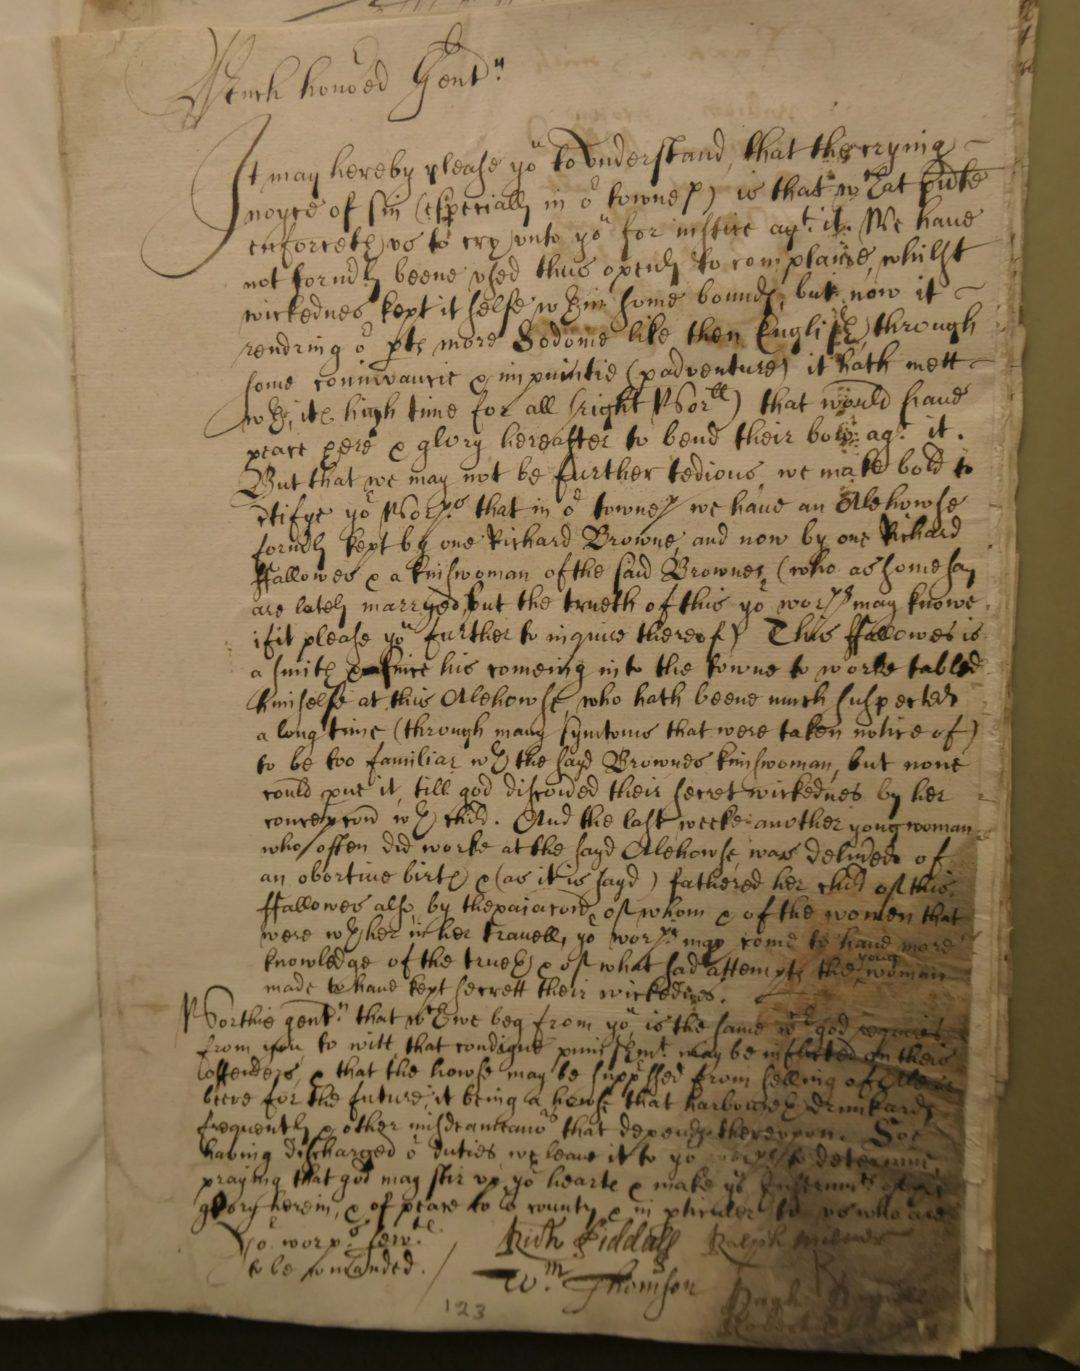 Much hono:ed Gentn
It may hereby please you to understand, that the crying
noyse of sin (especially in or towne) is that wch at
enforceth us to cry unto you for iustice agt it. We have
not formly beene used thus openly to complaine, whilst
wickednes kept it selfe wthin some bounds, but now it
rendring or pts more Sodome like then English, through
some connivancie & impunitie (padventure) it hath mett
wth, its high time for all that would have
peace here & glory hereafter to bend their bow agt it.
But that we may not be further tedious, we make bold to
ctifye yor Worps that in or towne we have an Alehowse
formly kept by one Richard Browne, and now by one Richard
ffallowes & a kinswoman of the said Brownes, (who as some say
are lately marryed, but the trueth of this yor worps may knowe
if it please you further to inquire thereof) This ffallowes is
a smith & since his comeing into the towne to worke tabled
himselfe at this Alehowse, who hath beene much suspected
a long time (through many symtoms that were taken notice of)
to be too familiar wth the sayd Brownes kinswoman, but none
could pve it, till god discovered their secret wickednes by her
concepcon wth child. And the last weeke another yong woman
who often did worke at the sayd Alehowse, was delivered of
an abortive birth & (as it is sayd) fathered her child of this
ffallowes also, by of whom & of the women that
were wth her in her travell, yor worps may come to have more
knowledge of the trueth, & of what sad attempts the yong woman
made to have kept secrett their wickednes.
Worthie gentn that wch we beg from you, is the same wch god requires
from you to witt, that condigne punishmt may be inflicted on theis
offenders, & that the howse may be suppssed from selling of Ale or
beere for the future, it being a howse that harboureth drunkards
frequently & other misdeameanors that depends thereupon. Soe
having discharged or duties, we leave it to yor to determine,
praying that god may stir up yor hearts & make ye Instrumts of
glory herein, & of peace to or county & in pticuler to us who are
Yor worps servts
to be comanded.
Rich Siddall Ralph
Wm Thomson
Hugh
123